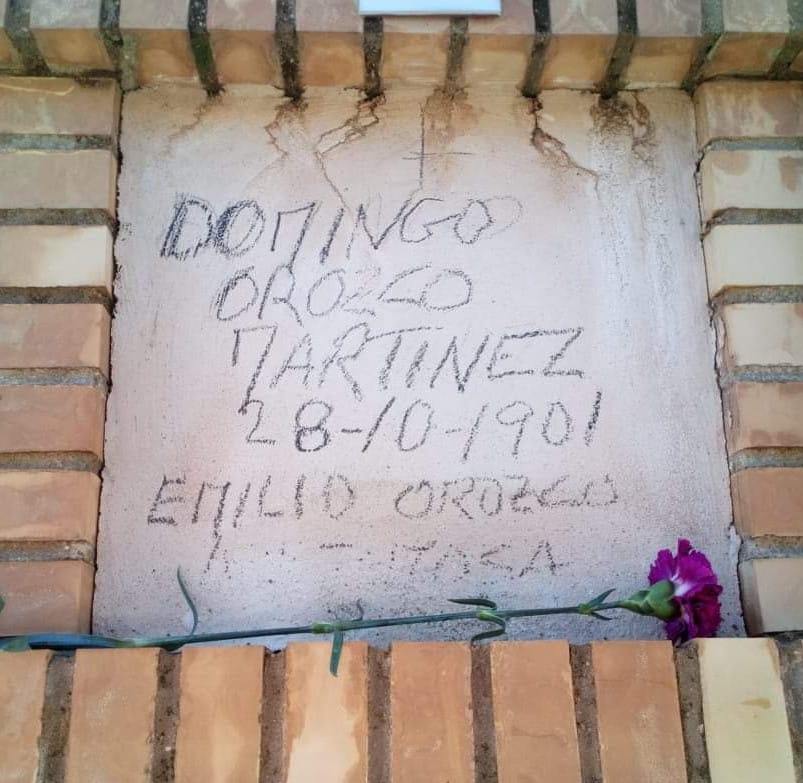 DOMINGO
OROZCO
MARTINEZ
28-10-1901
EMILIO OROZCO